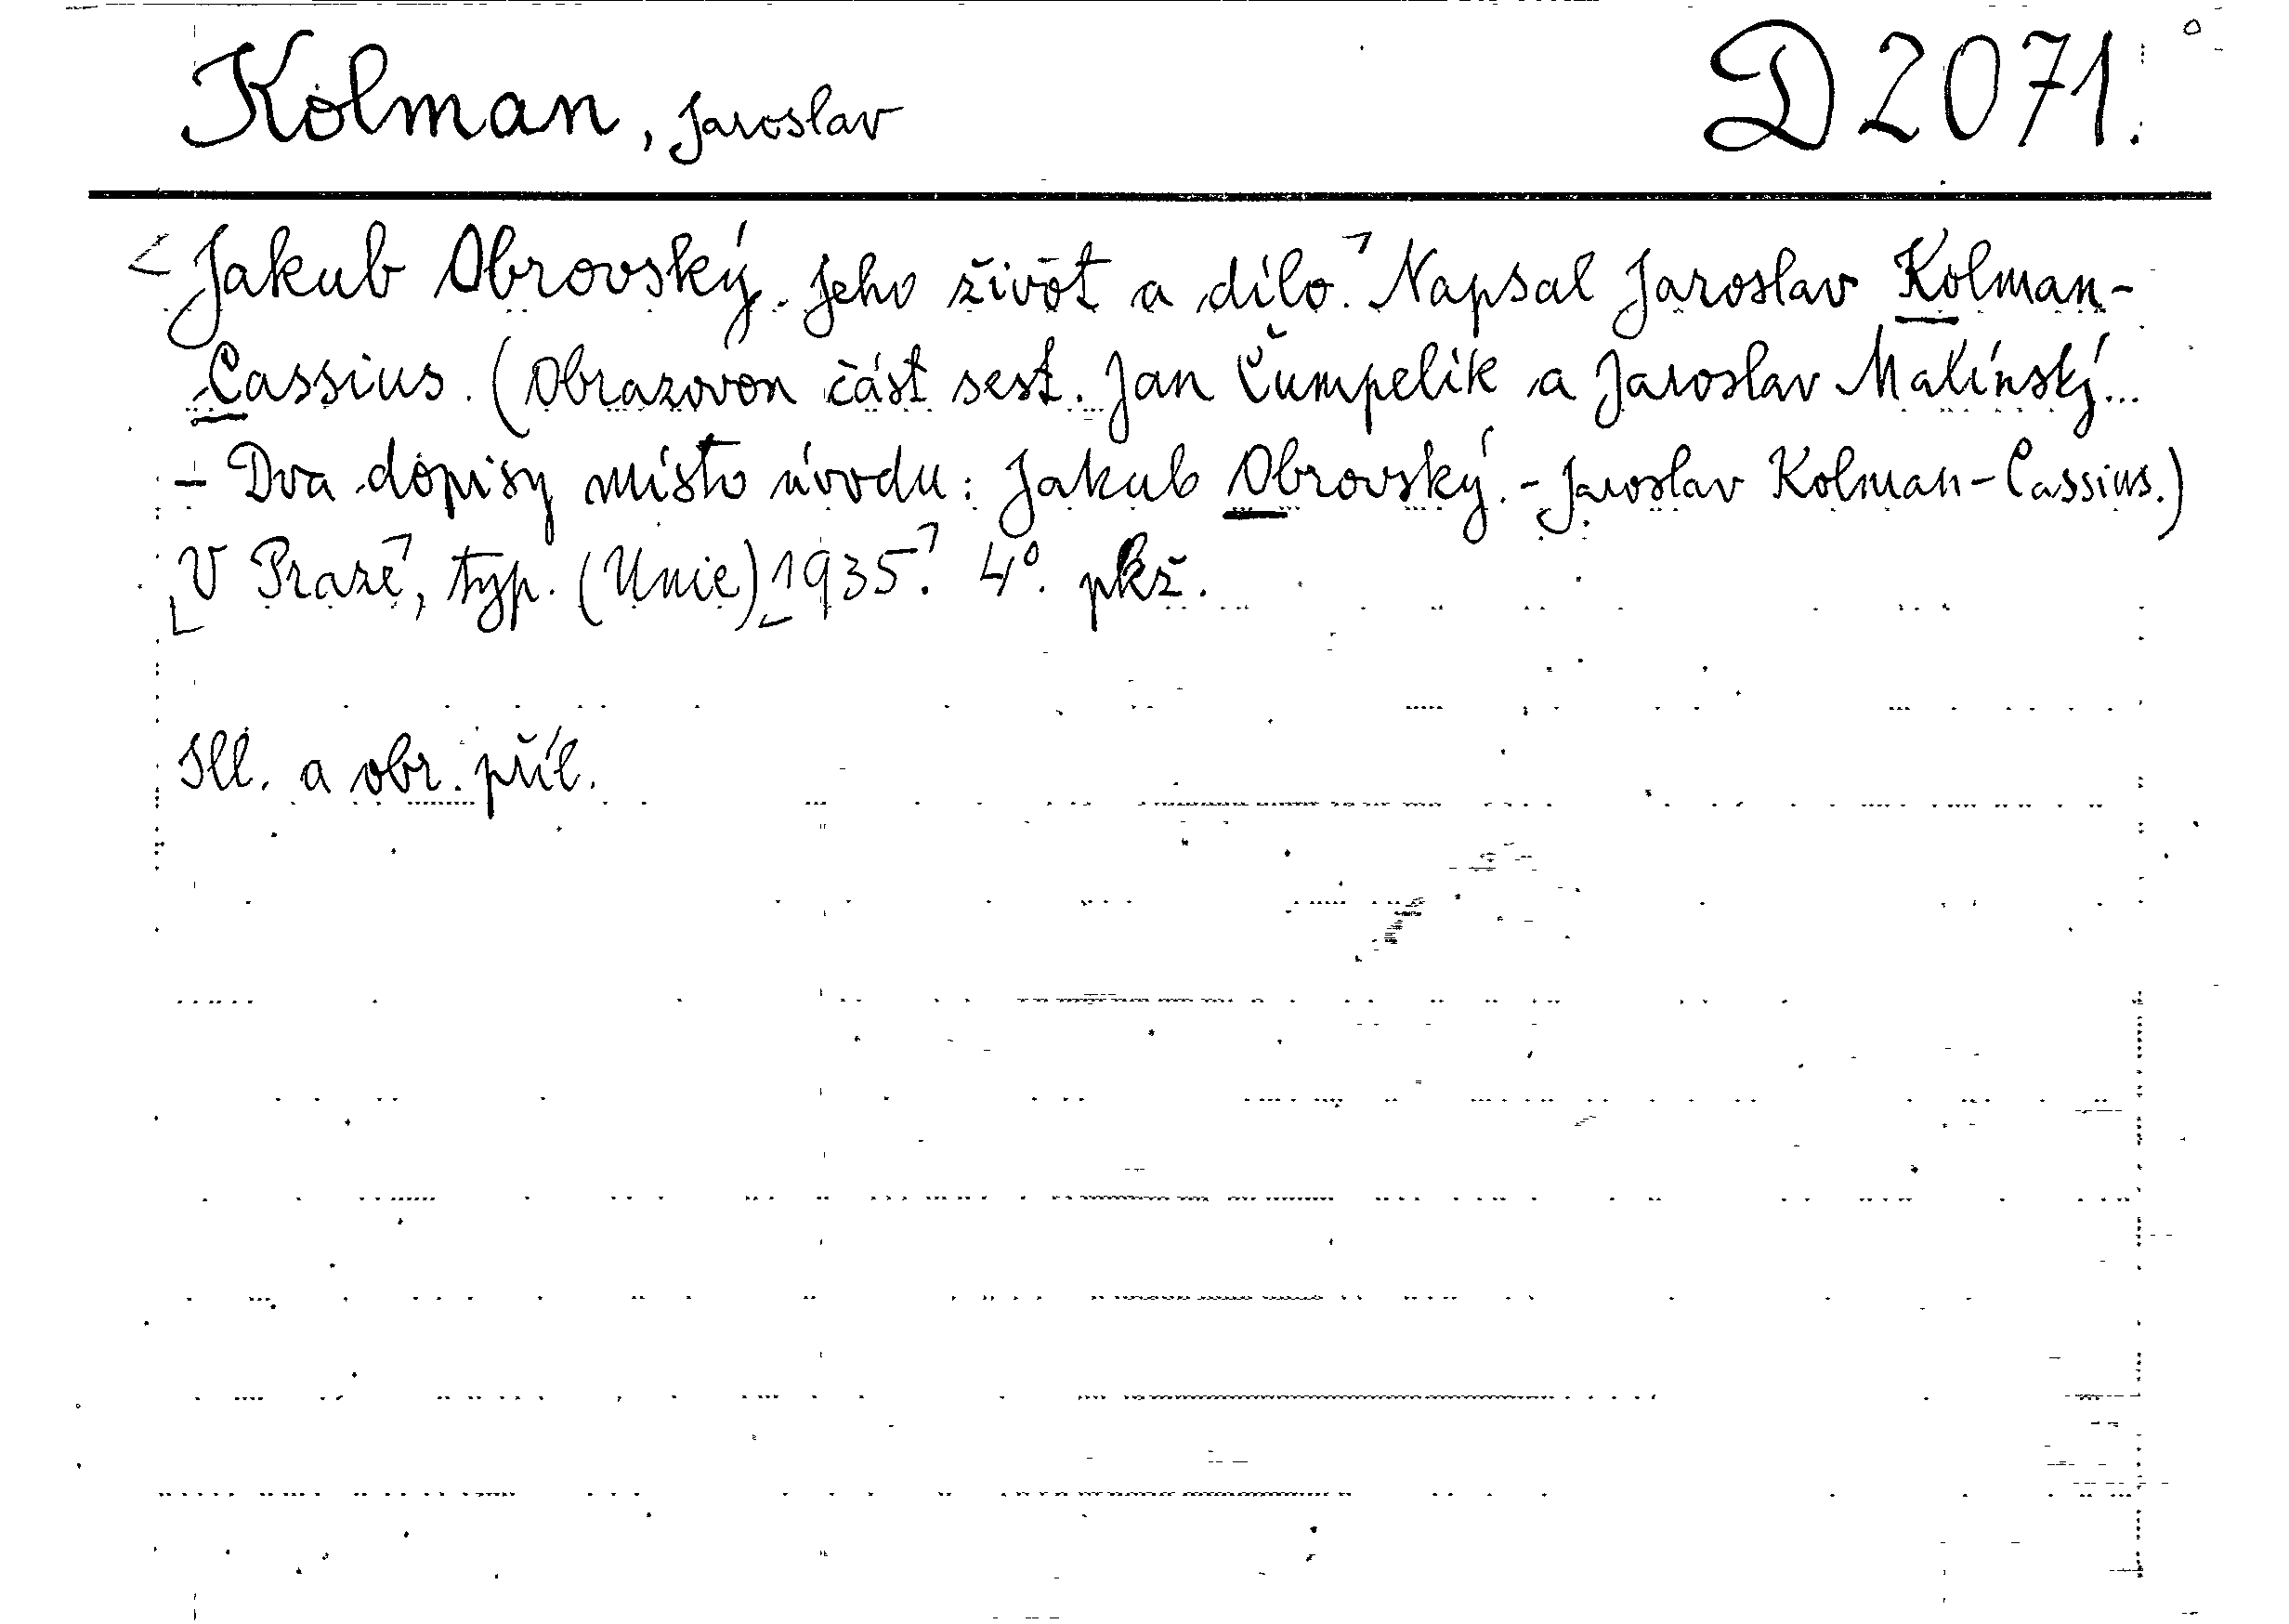 Kolman, Jaroslav D 2071.
Jakub Obrovský. Jeho život a dílo. Napsal Jaroslav Kolman-
Cassius. (Obrazovou část sest. Jan Čumpelík a Jaroslav Malínský...
– Dva dopisy místo úvodu: Jakub Obrovský. – Jaroslav Kolman-Cassius.)
V Praze, typ. (Unie) 1935. 4°. pkž.
Ill. a obr. příl.